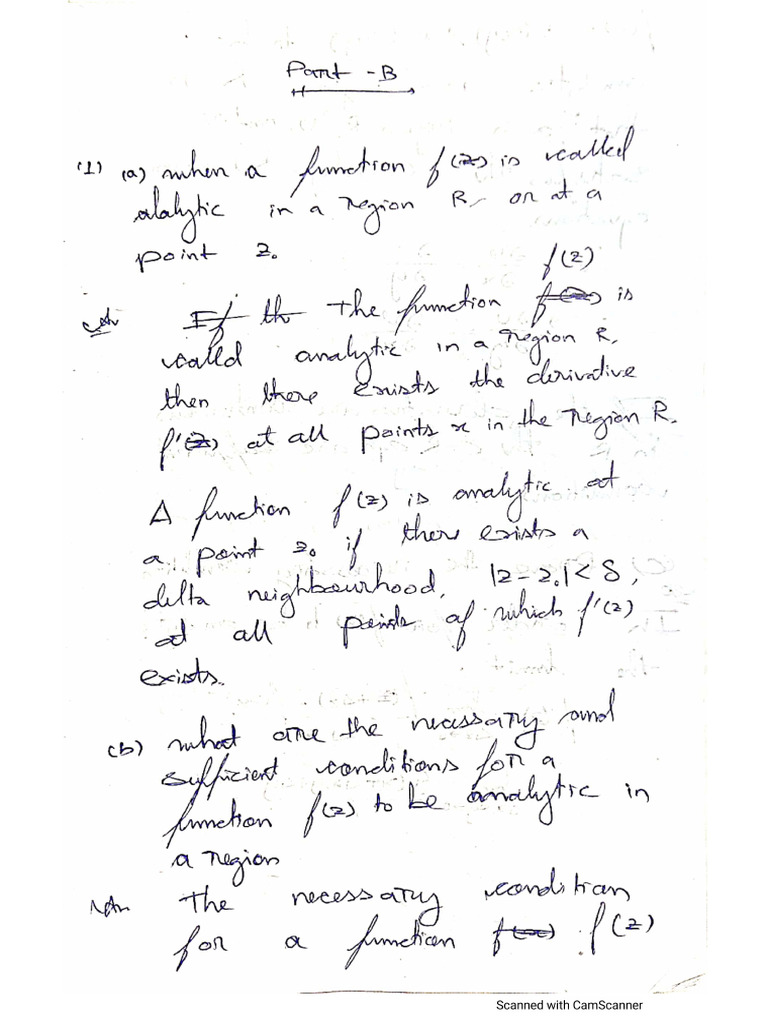 Part - B
(1) (a) when a function f(z) is called
alalytic in a region R, or at a
point z₀
f(z)
Ans If th The function f(z) is
called analytic in a region R,
then there exists the derivative
f'(z) at all points x in the region R.
A function f(z) is analytic at
a point z₀ if there exists a
delta neighbourhood, |z-z₀|<δ,
at all points of which f'(z)
exists.
(b) what are the necessary and
sufficient conditions for a
function f(z) to be analytic in
a region
Ans The necessary condition
for a function f(x) f(z)
Scanned with CamScanner